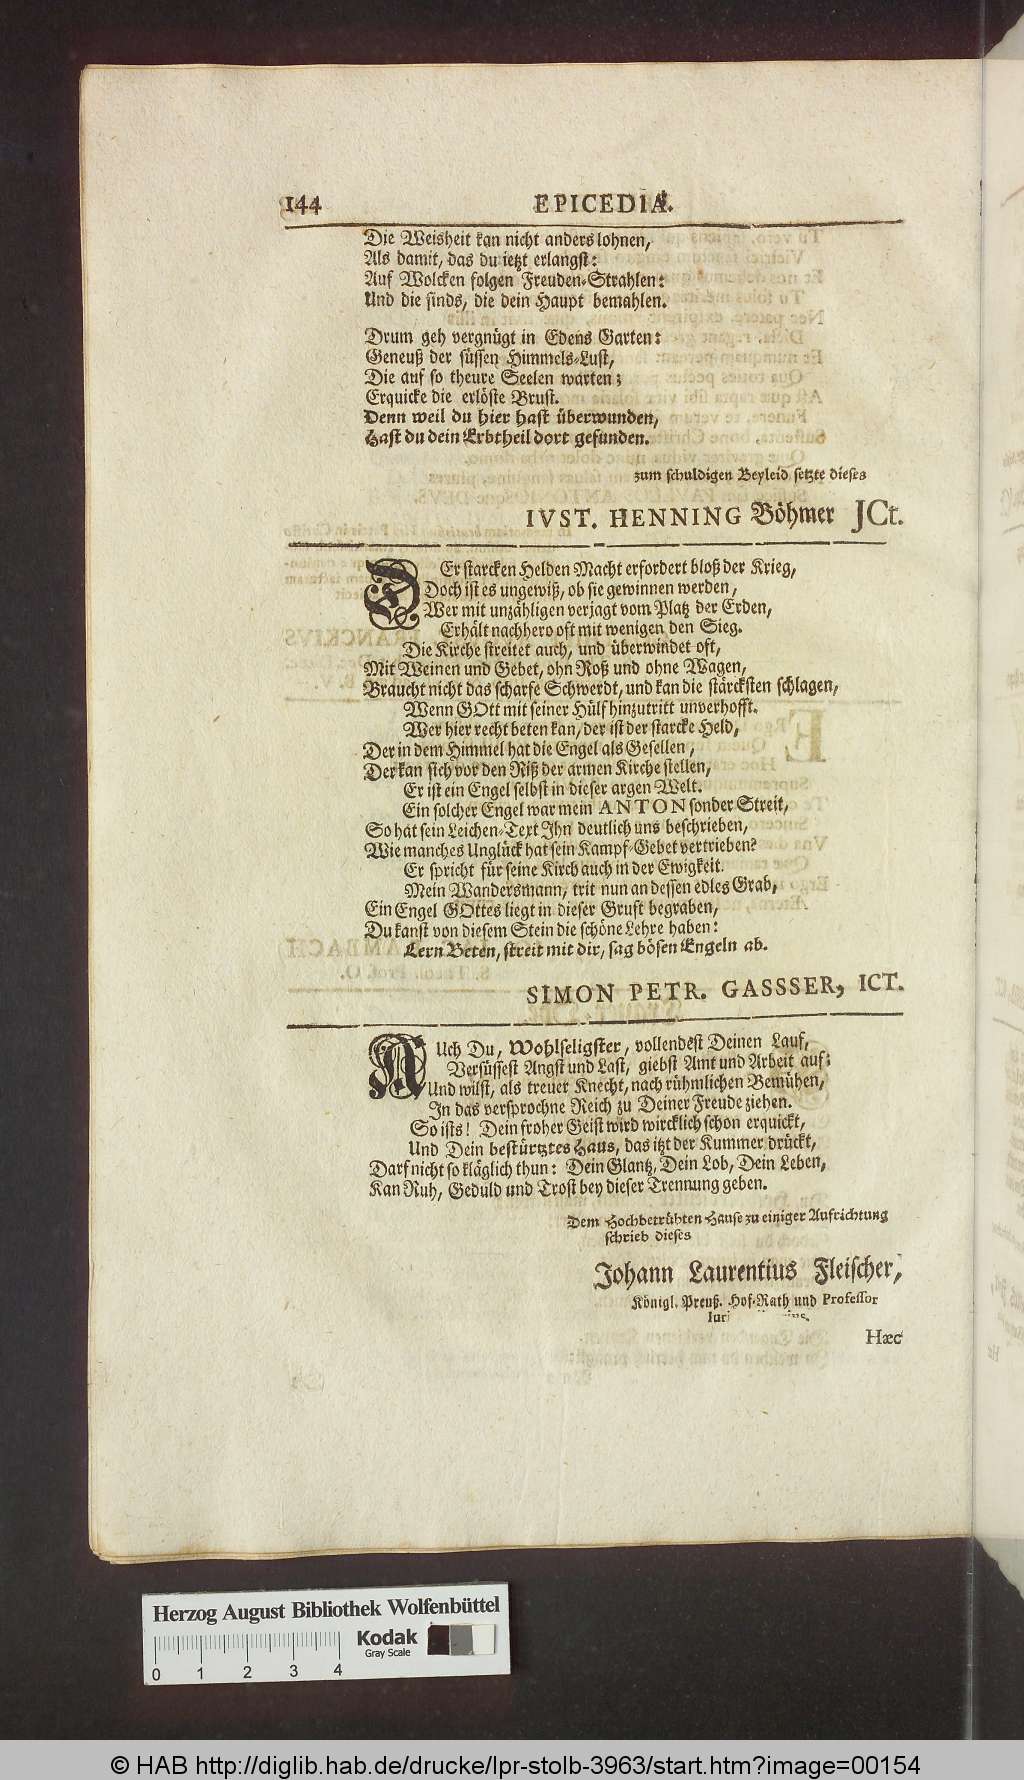 144 EPICEDIA.
Die Weisheit kan nicht anders lohnen,
Als damit, das du ietzt erlangst:
Auf Wolcken folgen Freuden-Strahlen:
Und die sinds, die dein Haupt bemahlen.
Drum geh vergnügt in Edens Garten:
Geneuß der süssen Himmels-Lust,
Die auf so theure Seelen warten;
Erquicke die erlöste Brust.
Denn weil du hier hast überwunden,
Hast du dein Erbtheil dort gefunden.
zum schuldigen Beyleid setzte dieses
IVST. HENNING Böhmer JCt.
DEr starcken Helden Macht erfordert bloß der Krieg,
Doch ist es ungewiß, ob sie gewinnen werden,
Wer mit unzähligen verjagt vom Platz der Erden,
Erhält nachhero oft mit wenigen den Sieg.
Die Kirche streitet auch, und überwindet oft,
Mit Weinen und Gebet, ohn Roß und ohne Wagen,
Braucht nicht das scharfe Schwerdt, und kan die stärcksten schlagen,
Wenn GOtt mit seiner Hülf hinzutritt unverhofft.
Wer hier recht beten kan, der ist der starcke Held,
Der in dem Himmel hat die Engel als Gesellen,
Der kan sich vor den Riß der armen Kirche stellen,
Er ist ein Engel selbst in dieser argen Welt.
Ein solcher Engel war mein ANTON sonder Streit,
So hat sein Leichen-Text Ihn deutlich uns beschrieben,
Wie manches Unglück hat sein Kampf-Gebet vertrieben?
Er spricht für seine Kirch auch in der Ewigkeit.
Mein Wandersmann, trit nun an dessen edles Grab,
Ein Engel GOttes liegt in dieser Gruft begraben,
Du kanst von diesem Stein die schöne Lehre haben:
Lern Beten, streit mit dir, sag bösen Engeln ab.
SIMON PETR. GASSSER, ICT.
AUch Du, Wohlseligster, vollendest Deinen Lauf,
Versüssest Angst und Last, giebst Amt und Arbeit auf;
Und wilst, als treuer Knecht, nach rühmlichen Bemühen,
In das versprochne Reich zu Deiner Freude ziehen.
So ists! Dein froher Geist wird wircklich schon erquickt,
Und Dein bestürtztes Haus, das itzt der Kummer drückt,
Darf nicht so kläglich thun: Dein Glantz, Dein Lob, Dein Leben,
Kan Ruh, Geduld und Trost bey dieser Trennung geben.
Dem Hochbetrübten Hause zu einiger Aufrichtung
schrieb dieses
Johann Laurentius Fleischer,
Königl. Preuß. Hof-Rath und Professor
Hæc
Herzog August Bibliothek Wolfenbüttel
Kodak
Gray Scale
0 1 2 3 4
© HAB http://diglib.hab.de/drucke/lpr-stolb-3963/start.htm?image=00154